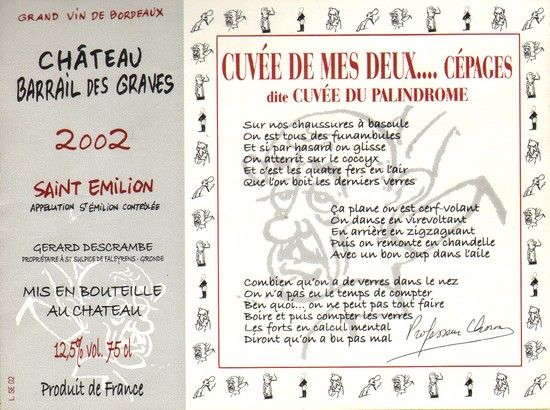 GRAND VIN DE BORDEAUX
CHÂTEAU
BARRAIL DES GRAVES
2002
SAINT EMILION
APPELLATION ST ÉMILION CONTRÔLÉE
GERARD DESCRAMBE
PROPRIÉTAIRE À ST SULPICE DE FALEYRENS - GIRONDE
MIS EN BOUTEILLE
AU CHATEAU
12,5% vol. 75 cl
Produit de France
L. SE 02
CUVÉE DE MES DEUX.... CÉPAGES
dite CUVÉE DU PALINDROME
Sur nos chaussures à bascule
On est tous des funambules
Et si par hasard on glisse
On atterrit sur le coccyx
Et c'est les quatre fers en l'air
Que l'on boit les derniers verres
Ça plane on est cerf-volant
On danse en virevoltant
En arrière en zigzaguant
Puis on remonte en chandelle
Avec un bon coup dans l'aile
Combien qu'on a de verres dans le nez
On n'a pas eu le temps de compter
Ben quoi... on ne peut pas tout faire
Boire et puis compter les verres
Les forts en calcul mental
Diront qu'on a bu pas mal
Professeur Choron